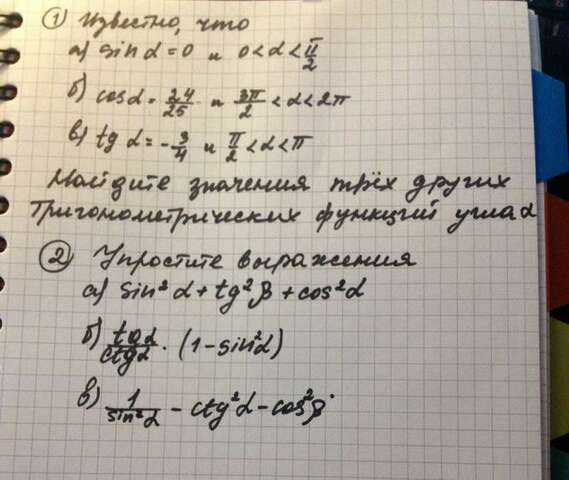 ① Известно, что
а) sin α = 0 и 0 < α < π/2
б) cos α = 24/25 и 3π/2 < α < 2π
в) tg α = -3/4 и π/2 < α < π
Найдите значения трёх других
тригонометрических функций угла α
② Упростите выражения
а) sin² α + tg² β + cos² α
б) tg α/ctg α · (1 - sin² α)
в) 1/sin² α - ctg² α - cos² β